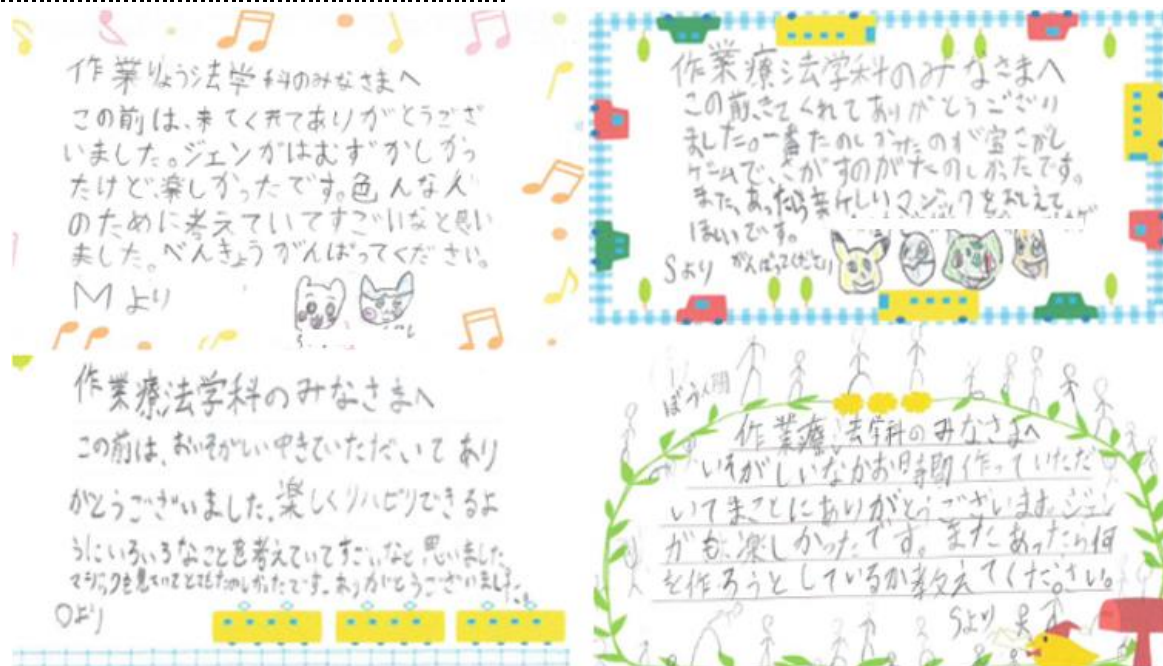 作業りょう法学科のみなさまへ
この前は、来てくれてありがとうござ
いました。ジェンガはむずかしかっ
たけど、楽しかったです。色んな人
のために考えていてすごいなと思い
ました。べんきょうがんばってください。
Mより
作業療法学科のみなさまへ
この前、きてくれてありがとうござい
ました。一番たのしかったのが宝さがし
ゲームで、さがすのがたのしかったです。
また、あったら新しいマジックをおしえて
ほしいです。
Sより がんばってください
作業療法学科のみなさまへ
この前は、おいそがしい中きていただいてあり
がとうございました。楽しくリハビリできるよ
うにいろいろなことを考えていてすごいなと思いました。
マジックを見ていてとてもたのしかったです。ありがとうございました。
Oより
ぼう人間
作業療法学科のみなさまへ
いそがしいなかお時間作っていただ
いてまことにありがとうございます。ジェン
ガも楽しかったです。またあったら何
を作ろうとしているか教えてください。
Sより